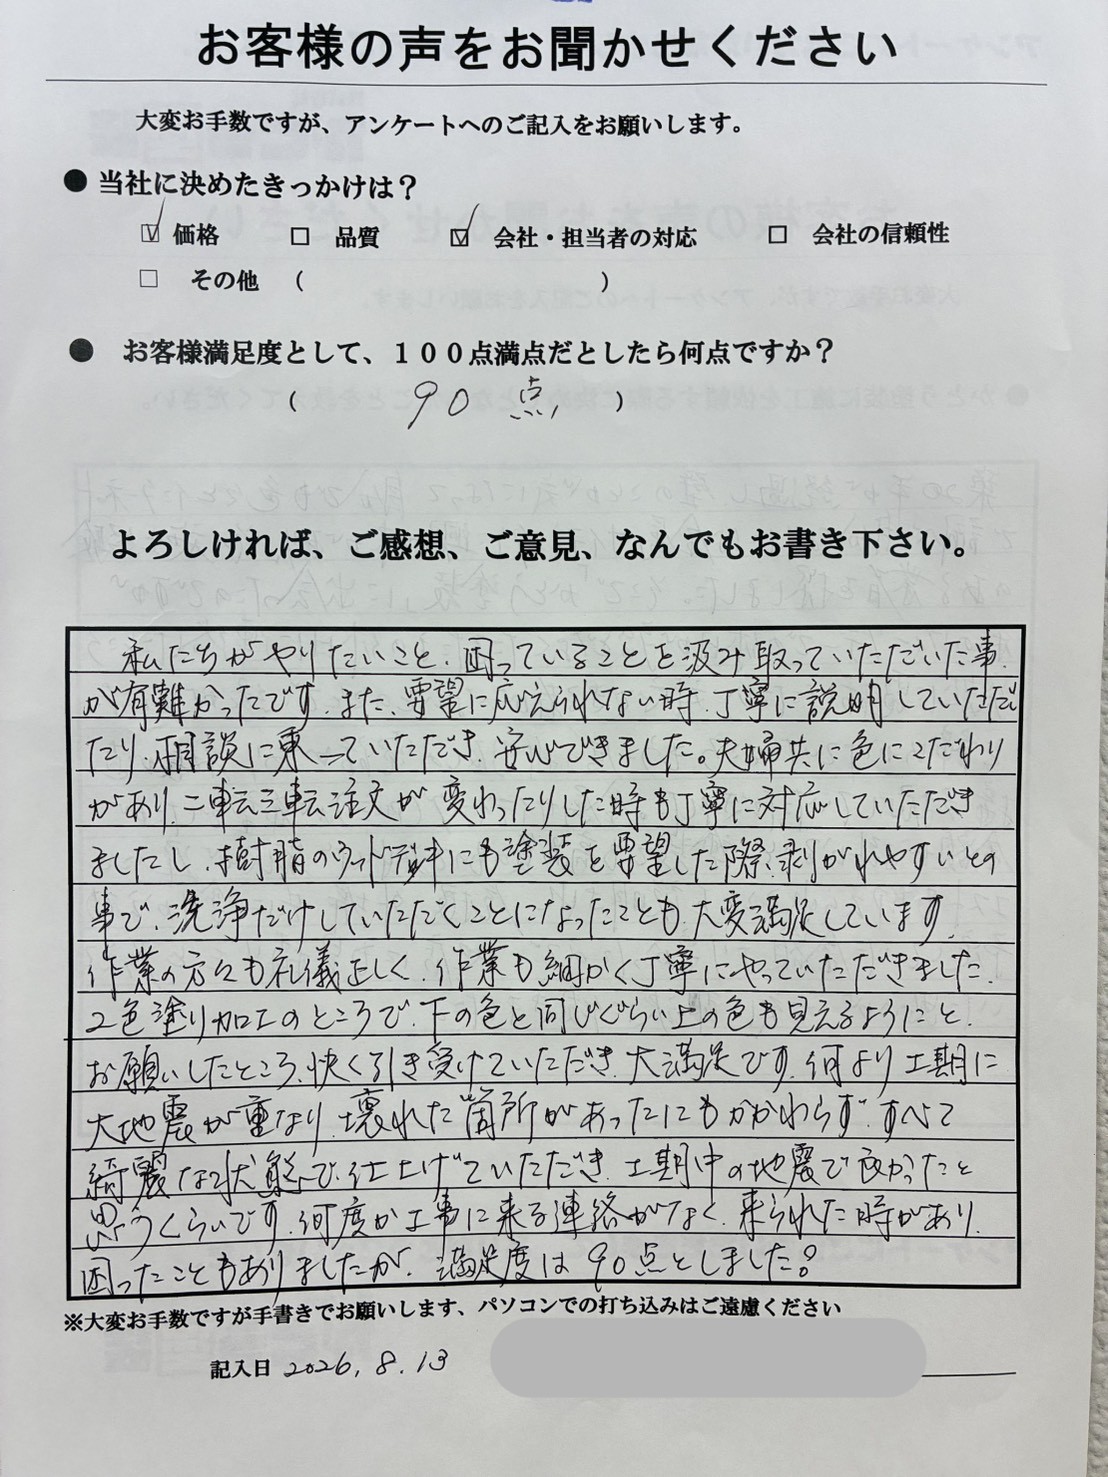 お客様の声をお聞かせください
大変お手数ですが、アンケートへのご記入をお願いします。
● 当社に決めたきっかけは？
☑ 価格 □ 品質 ☑ 会社・担当者の対応 □ 会社の信頼性
□ その他 （ ）
● お客様満足度として、１００点満点だとしたら何点ですか？
（ 90 点 ）
よろしければ、ご感想、ご意見、なんでもお書き下さい。
私たちがやりたいこと、困っていることを汲み取っていただいた事
が有難かったです。また、要望に応えられない時、丁寧に説明していただい
たり、相談に乗っていただき、安心できました。夫婦共に色にこだわり
があり、二転三転注文が変わったりした時も丁寧に対応していただき
ましたし、樹脂のウッドデッキにも塗装を要望した際、剥がれやすいとの
事で、洗浄だけしていただくことになったことも、大変満足しています。
作業の方々も礼儀正しく、作業も細かく丁寧にやっていただきました。
2色塗り加工のところで、下の色と同じぐらい上の色も見えるようにと、
お願いしたところ、快く引き受けていただき、大満足です。何より工期に
大地震が重なり、壊れた箇所があったにもかかわらず、すべて
綺麗な状態で仕上げていただき、工期中の地震で良かったと
思うくらいです。何度か工事に来る連絡がなく、来られた時があり、
困ったこともありましたが、満足度は90点としました。
※大変お手数ですが手書きでお願いします、パソコンでの打ち込みはご遠慮ください
記入日 2026. 8. 13